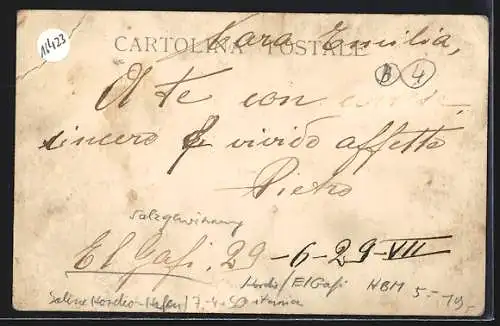 11423
CARTOLINA POSTALE
Cara Emilia,
B 4
A te con
sincero e vivido affetto
Pietro
Salzgewinnung
El Gafi, 29-6-29-VII
Hordio/ElGafi NBM 5.- 19.-
Saline Hordio-Hafun/